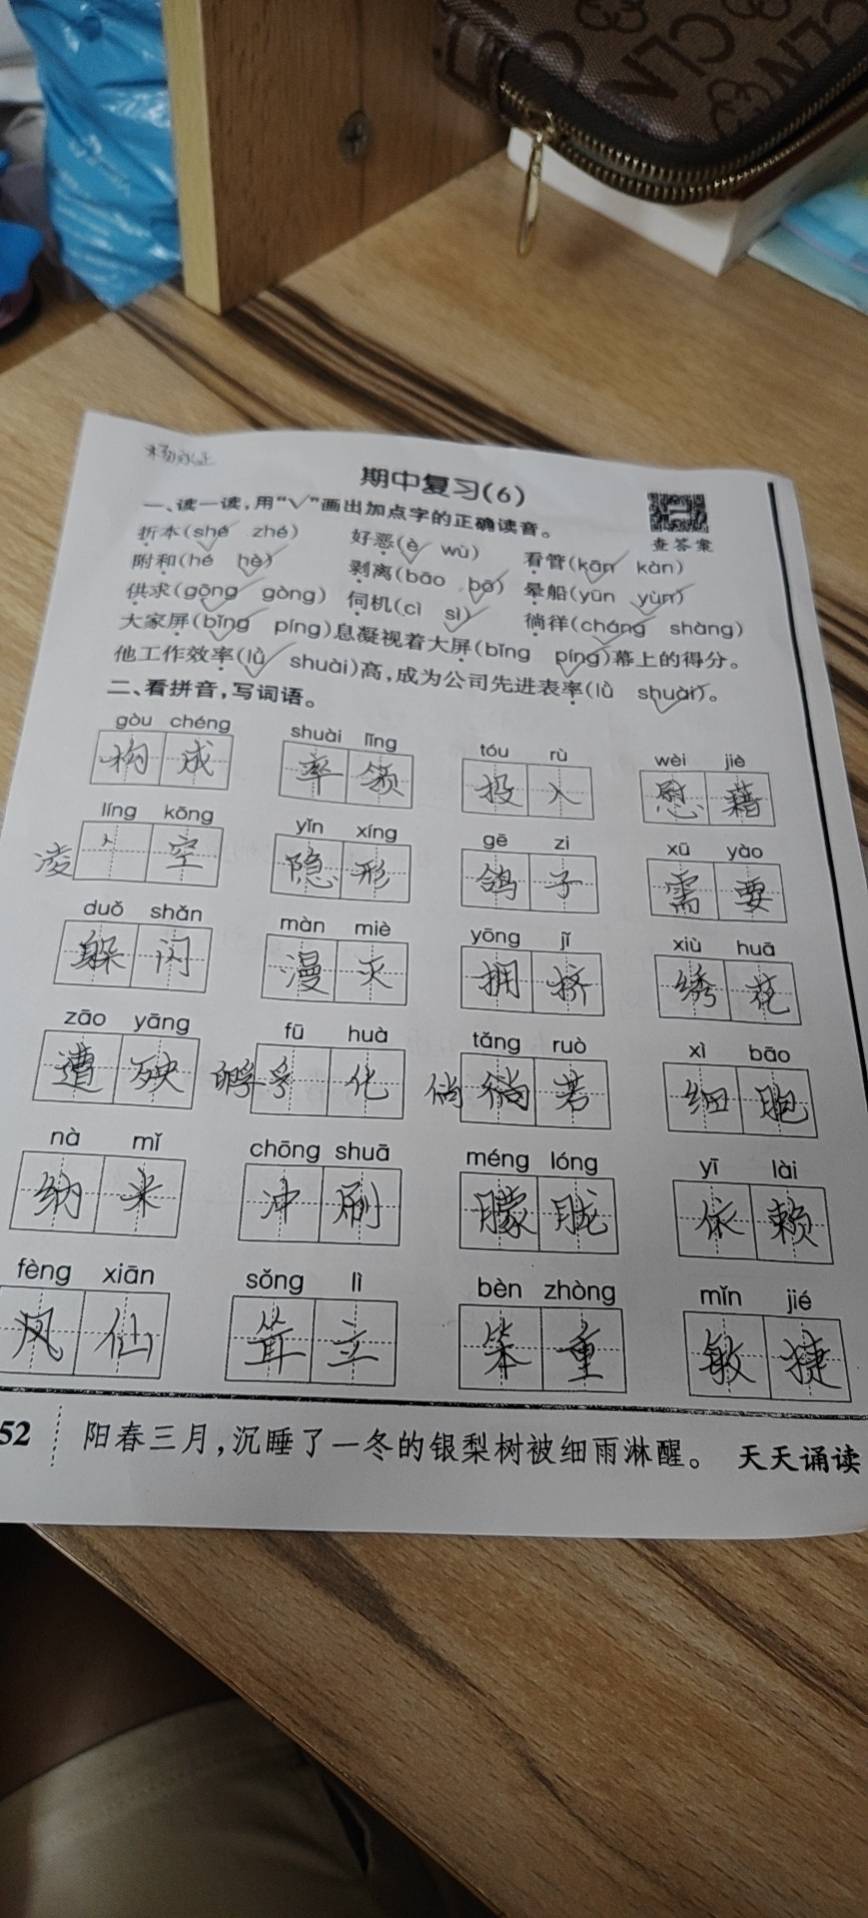 期中复习(6)
一、读一读,用“√”画出加点字的正确读音。
查答案
折本(shé√ zhé) 好恶(è√ wù) 看管(kān√ kàn)
附和(hé hè√) 剥离(bāo bō√) 晕船(yūn yùn√)
供求(gōng√ gòng) 伺机(cì sì√) 徜徉(cháng√ shàng)
大家屏(bǐng√ píng)息凝视着大屏(bǐng píng√)幕上的得分。
他工作效率(lǜ√ shuài)高,成为公司先进表率(lǜ shuài√)。
二、看拼音,写词语。
gòu chéng shuài lǐng tóu rù wèi jiè
构成 率领 投入 慰藉
líng kōng yǐn xíng gē zi xū yào
凌 空 隐形 鸽子 需要
duǒ shǎn màn miè yōng jǐ xiù huā
躲闪 漫灭 拥挤 绣花
zāo yāng fū huà tǎng ruò xì bāo
遭殃 孵 孚化 倘 徜若 细胞
nà mǐ chōng shuā méng lóng yī lài
纳米 冲刷 朦胧 依赖
fèng xiān sǒng lì bèn zhòng mǐn jié
凤仙 耸立 笨重 敏捷
52 阳春三月,沉睡了一冬的银梨树被细雨淋醒。 天天诵读